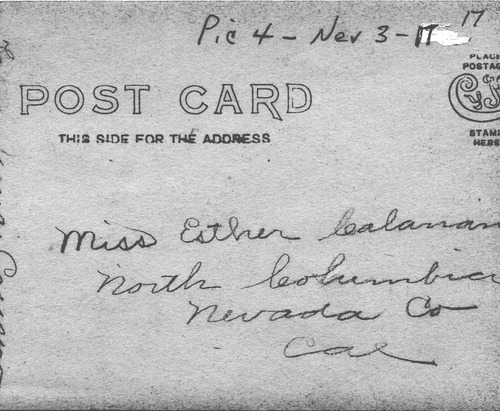 Pic 4 - Nev 3 - 17
17
POST CARD
THIS SIDE FOR THE ADDRESS
PLACE
POSTAG
CYKO
STAMP
HERE
Miss Esther Calanan
North Columbia
Nevada Co
Cal